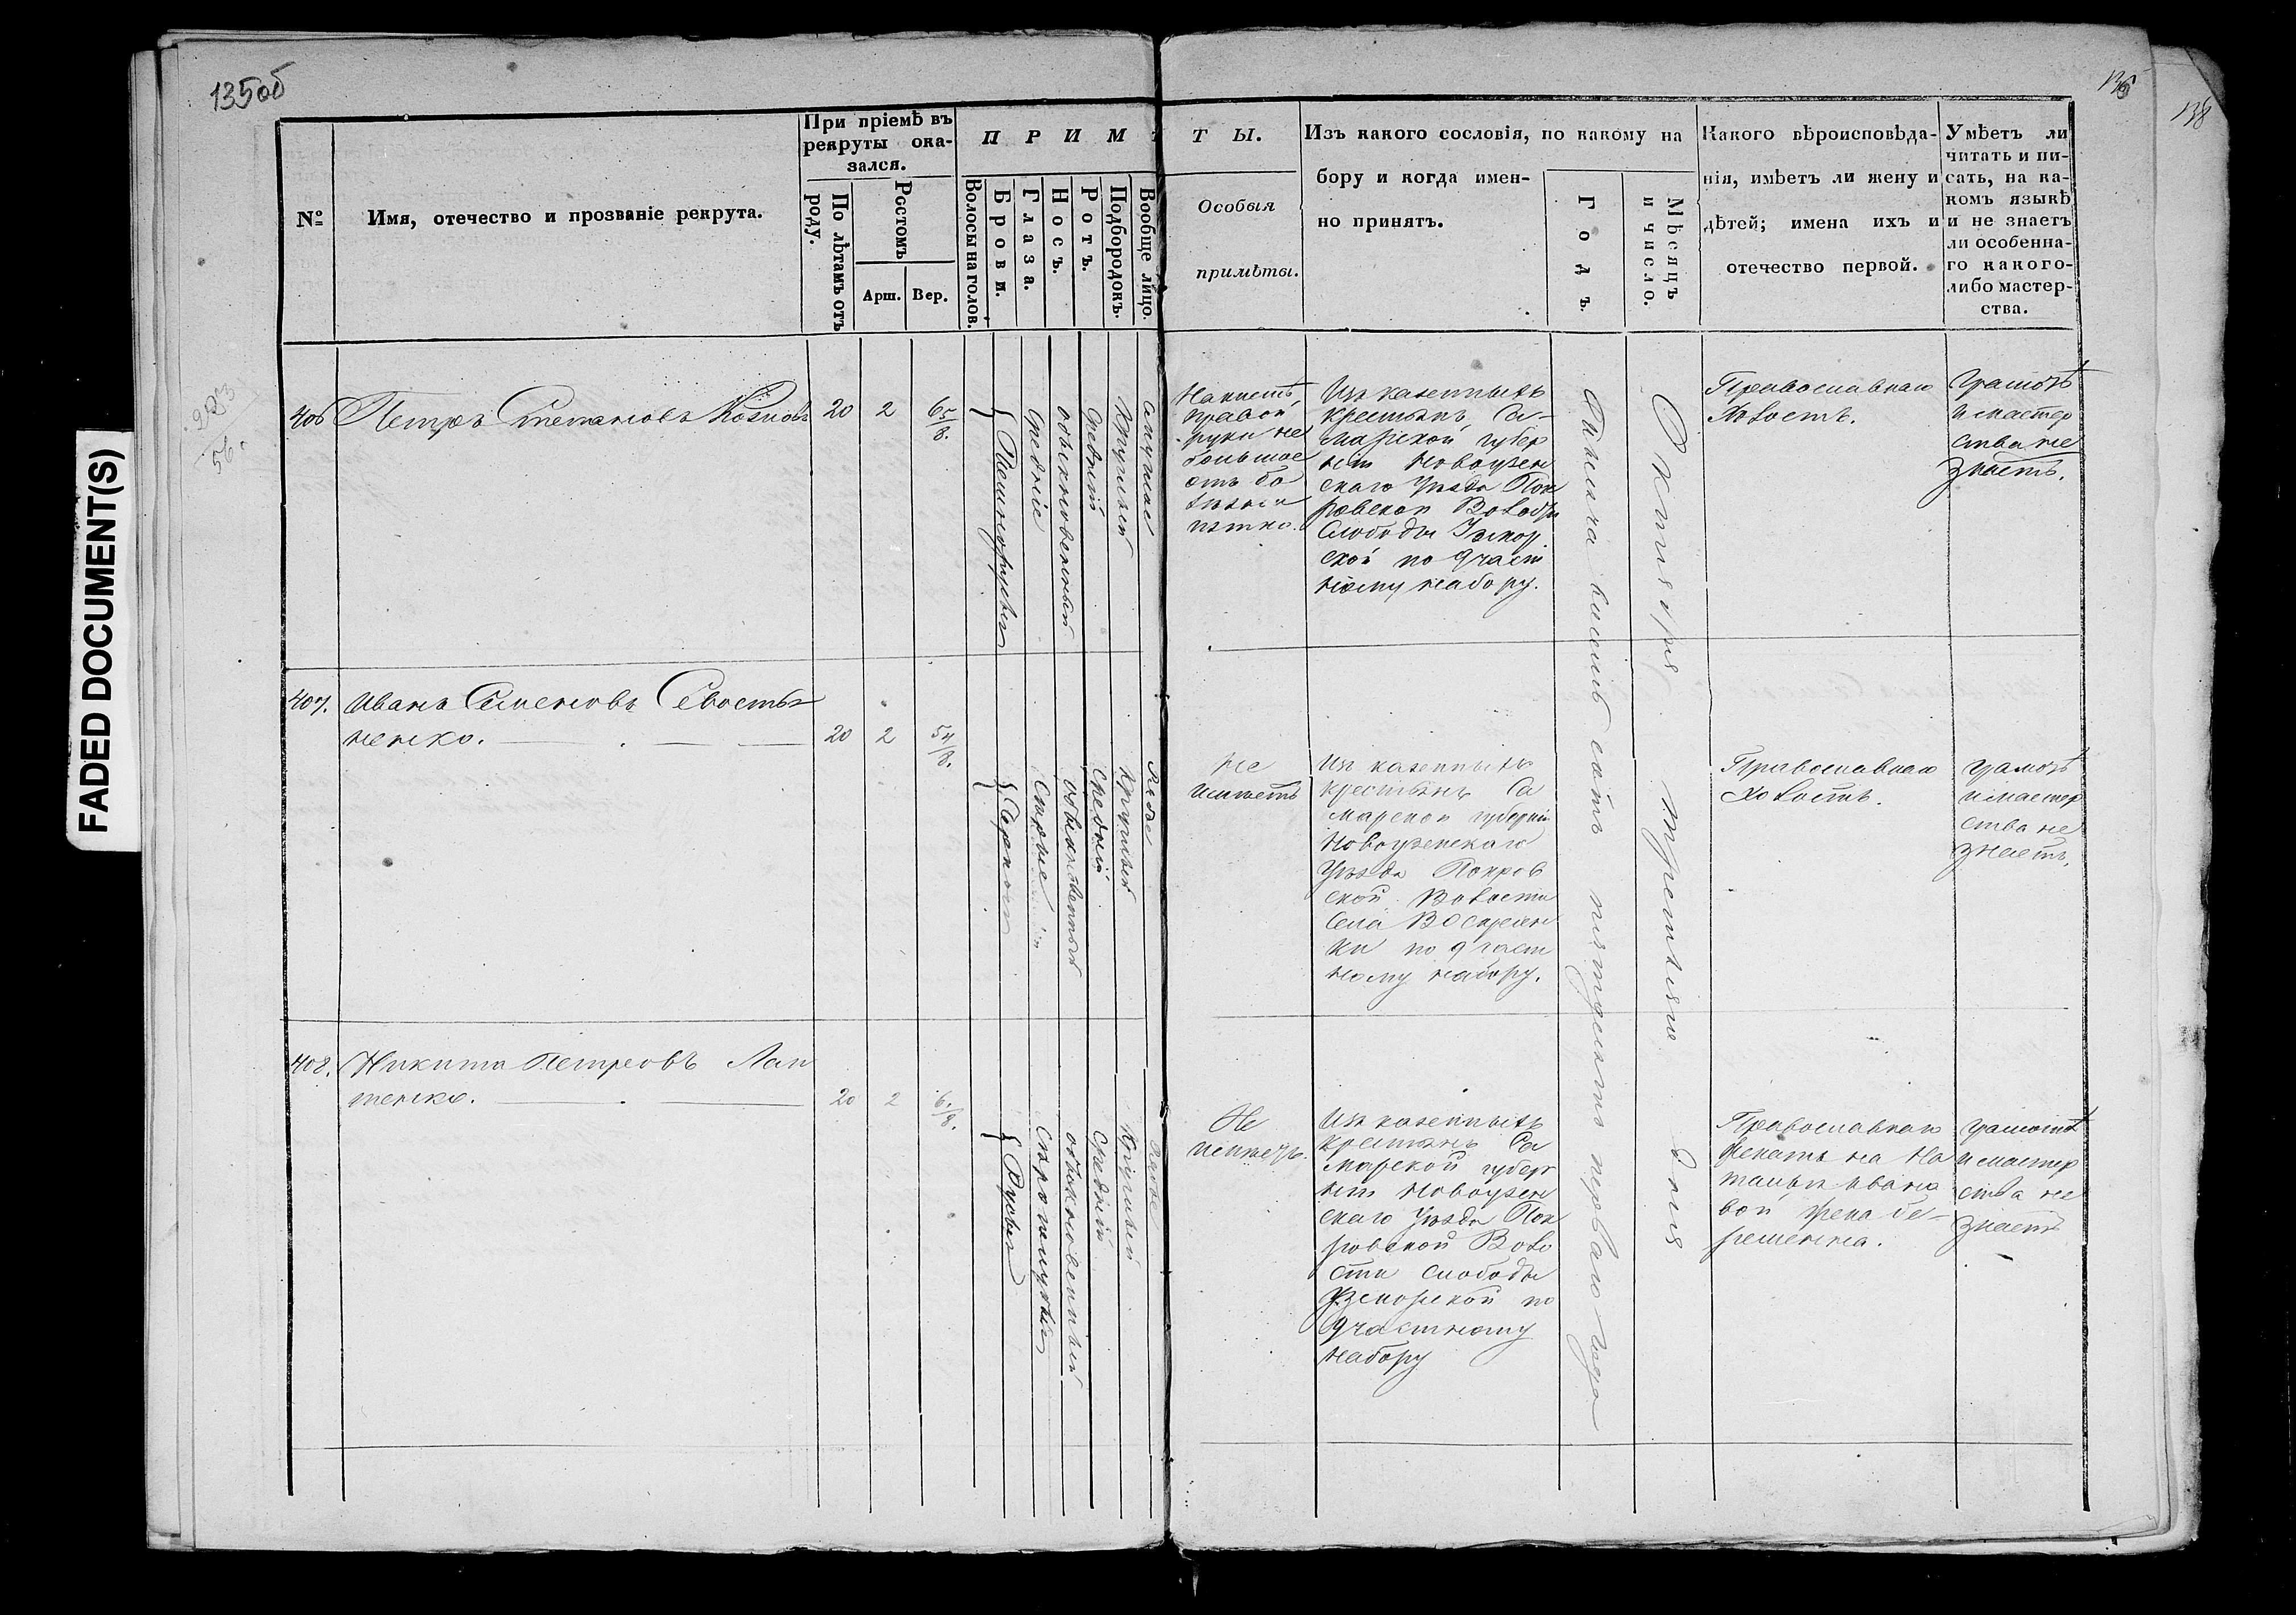 135об
136
138
FADED DOCUMENT(S)
№
Имя, отечество и прозваніе рекрута.
При пріемѣ въ
рекруты ока-
зался.
По лѣтамъ отъ
роду.
Ростомъ
Арш.
Вер.
П Р И М Ѣ Т Ы.
Волосы на голов.
Брови.
Глаза.
Носъ.
Ротъ.
Подбородокъ.
Вообще лицо.
Особыя
примѣты.
Изъ какого сословія, по какому на
бору и когда имен-
но принятъ.
Годъ.
Мѣсяцъ
и число.
Какого вѣроисповѣда-
нія, имѣетъ ли жену и
дѣтей; имена ихъ и
отечество первой.
Умѣетъ ли
читать и пи-
сать, на ка-
комъ языкѣ
и не знаетъ
ли особенна-
го какого-
либо мастер-
ства.
406
Петръ Степановъ
20
2
6 5/8.
Темнорусые
Средніе
обыкновенный
Средній
Круглый
смуглое
На кисти
правой
руки не
большое
отъ бо
лѣзни
пятно.
Изъ казенныхъ
крестьянъ Са-
марской губер
ніи Новоузен
скаго Уѣзда Пок
ровской Волости
Слободы Узмор
ской по 9 част
ному набору.
Православнаго
Холостъ.
Грамотѣ
и мастер
ства не
знаетъ.
Тысяча восемь сотъ пятьдесятъ перваго года
Октября третьяго дня
407.
Иванъ Семеновъ Севостья
ненко.
20
2
5 4/8.
Сѣрые
обыкновенный
Средній
Круглый
Не
имѣетъ
Изъ казенныхъ
крестьянъ Са
марской губерніи
Новоузенскаго
Уѣзда Покров
ской Волости
Села Воскресен
ки по 9 част
ному набору.
Православнаго
Холостъ.
грамотѣ
и мастер
ства не
знаетъ.
408.
Никита Петровъ Лап
тенко.
20
2
Русые
обыкновенный
Средній
Круглый
Не
имѣетъ.
Изъ казенныхъ
крестьянъ Са
марской губер
ніи Новоузен
скаго Уѣзда Пок
ровской Воло
сти слободы
Узморской по
9 частному
набору
Православнаго
Женатъ на На
тальи Ивано
вой жена бе-
ременна.
грамотѣ
и мастер
ства не
знаетъ